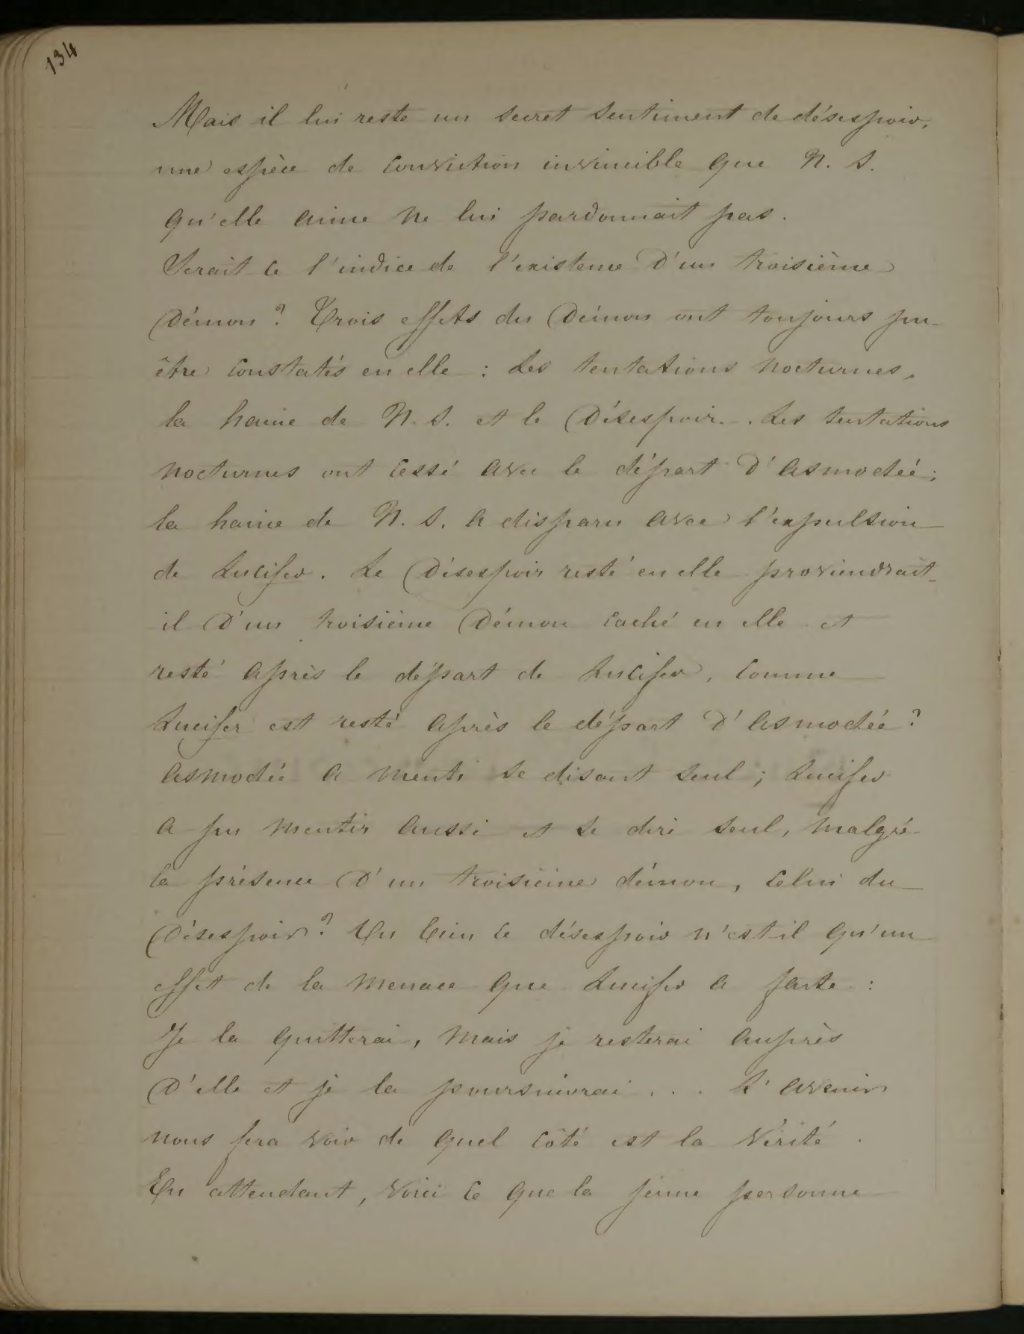 134
Mais il lui reste un secret sentiment de désespoir,
une espèce de conviction invincible que N. S.
qu'elle aime ne lui pardonnait pas.
Serait ce l'indice de l'existence d'un troisième
Démon ? Trois effets du Démon ont toujours pu
être constatés en elle : Les tentations nocturnes,
la haine de N. S. et le Désespoir. Les tentations
nocturnes ont cessé avec le départ d'Asmodée ;
la haine de N. S. a disparu avec l'expulsion
de Lucifer. Le Désespoir resté en elle proviendrait-
il d'un troisième Démon caché en elle et
resté après le départ de Lucifer, comme
Lucifer est resté après le départ d'Asmodée ?
Asmodée a menti se disant seul ; Lucifer
a pu mentir aussi et se dire seul, malgré
la présence d'un troisième démon, celui du
Désespoir ? Ou bien ce désespoir n'est-il qu'un
effet de la menace que Lucifer a faite :
Je la quitterai, mais je resterai auprès
d'elle et je la poursuivrai . . . L'avenir
nous fera voir de quel côté est la Vérité.
En attendant, voici ce que la jeune personne